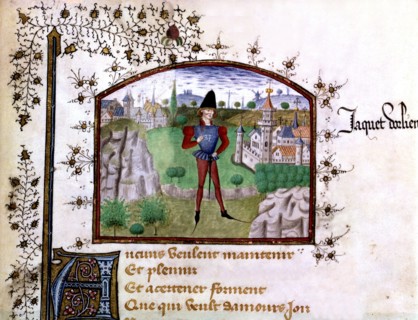 Jaquet dolien
Aucuns veulent maintenir
Et plenir
Et acertener forment
Que qui veult damours Joir